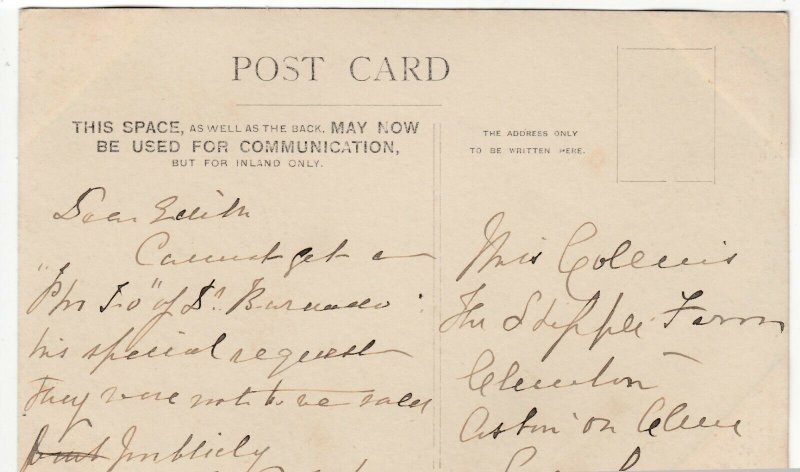 POST CARD
THIS SPACE, AS WELL AS THE BACK, MAY NOW
BE USED FOR COMMUNICATION,
BUT FOR INLAND ONLY.
THE ADDRESS ONLY
TO BE WRITTEN HERE.
Dear Edith
Cannot get a
"Pho To" of Dr Barnardo:
his special request
They were not to be sold
but publicly
Miss Collins
The Steppes Farm
Clunton
Aston on Clun